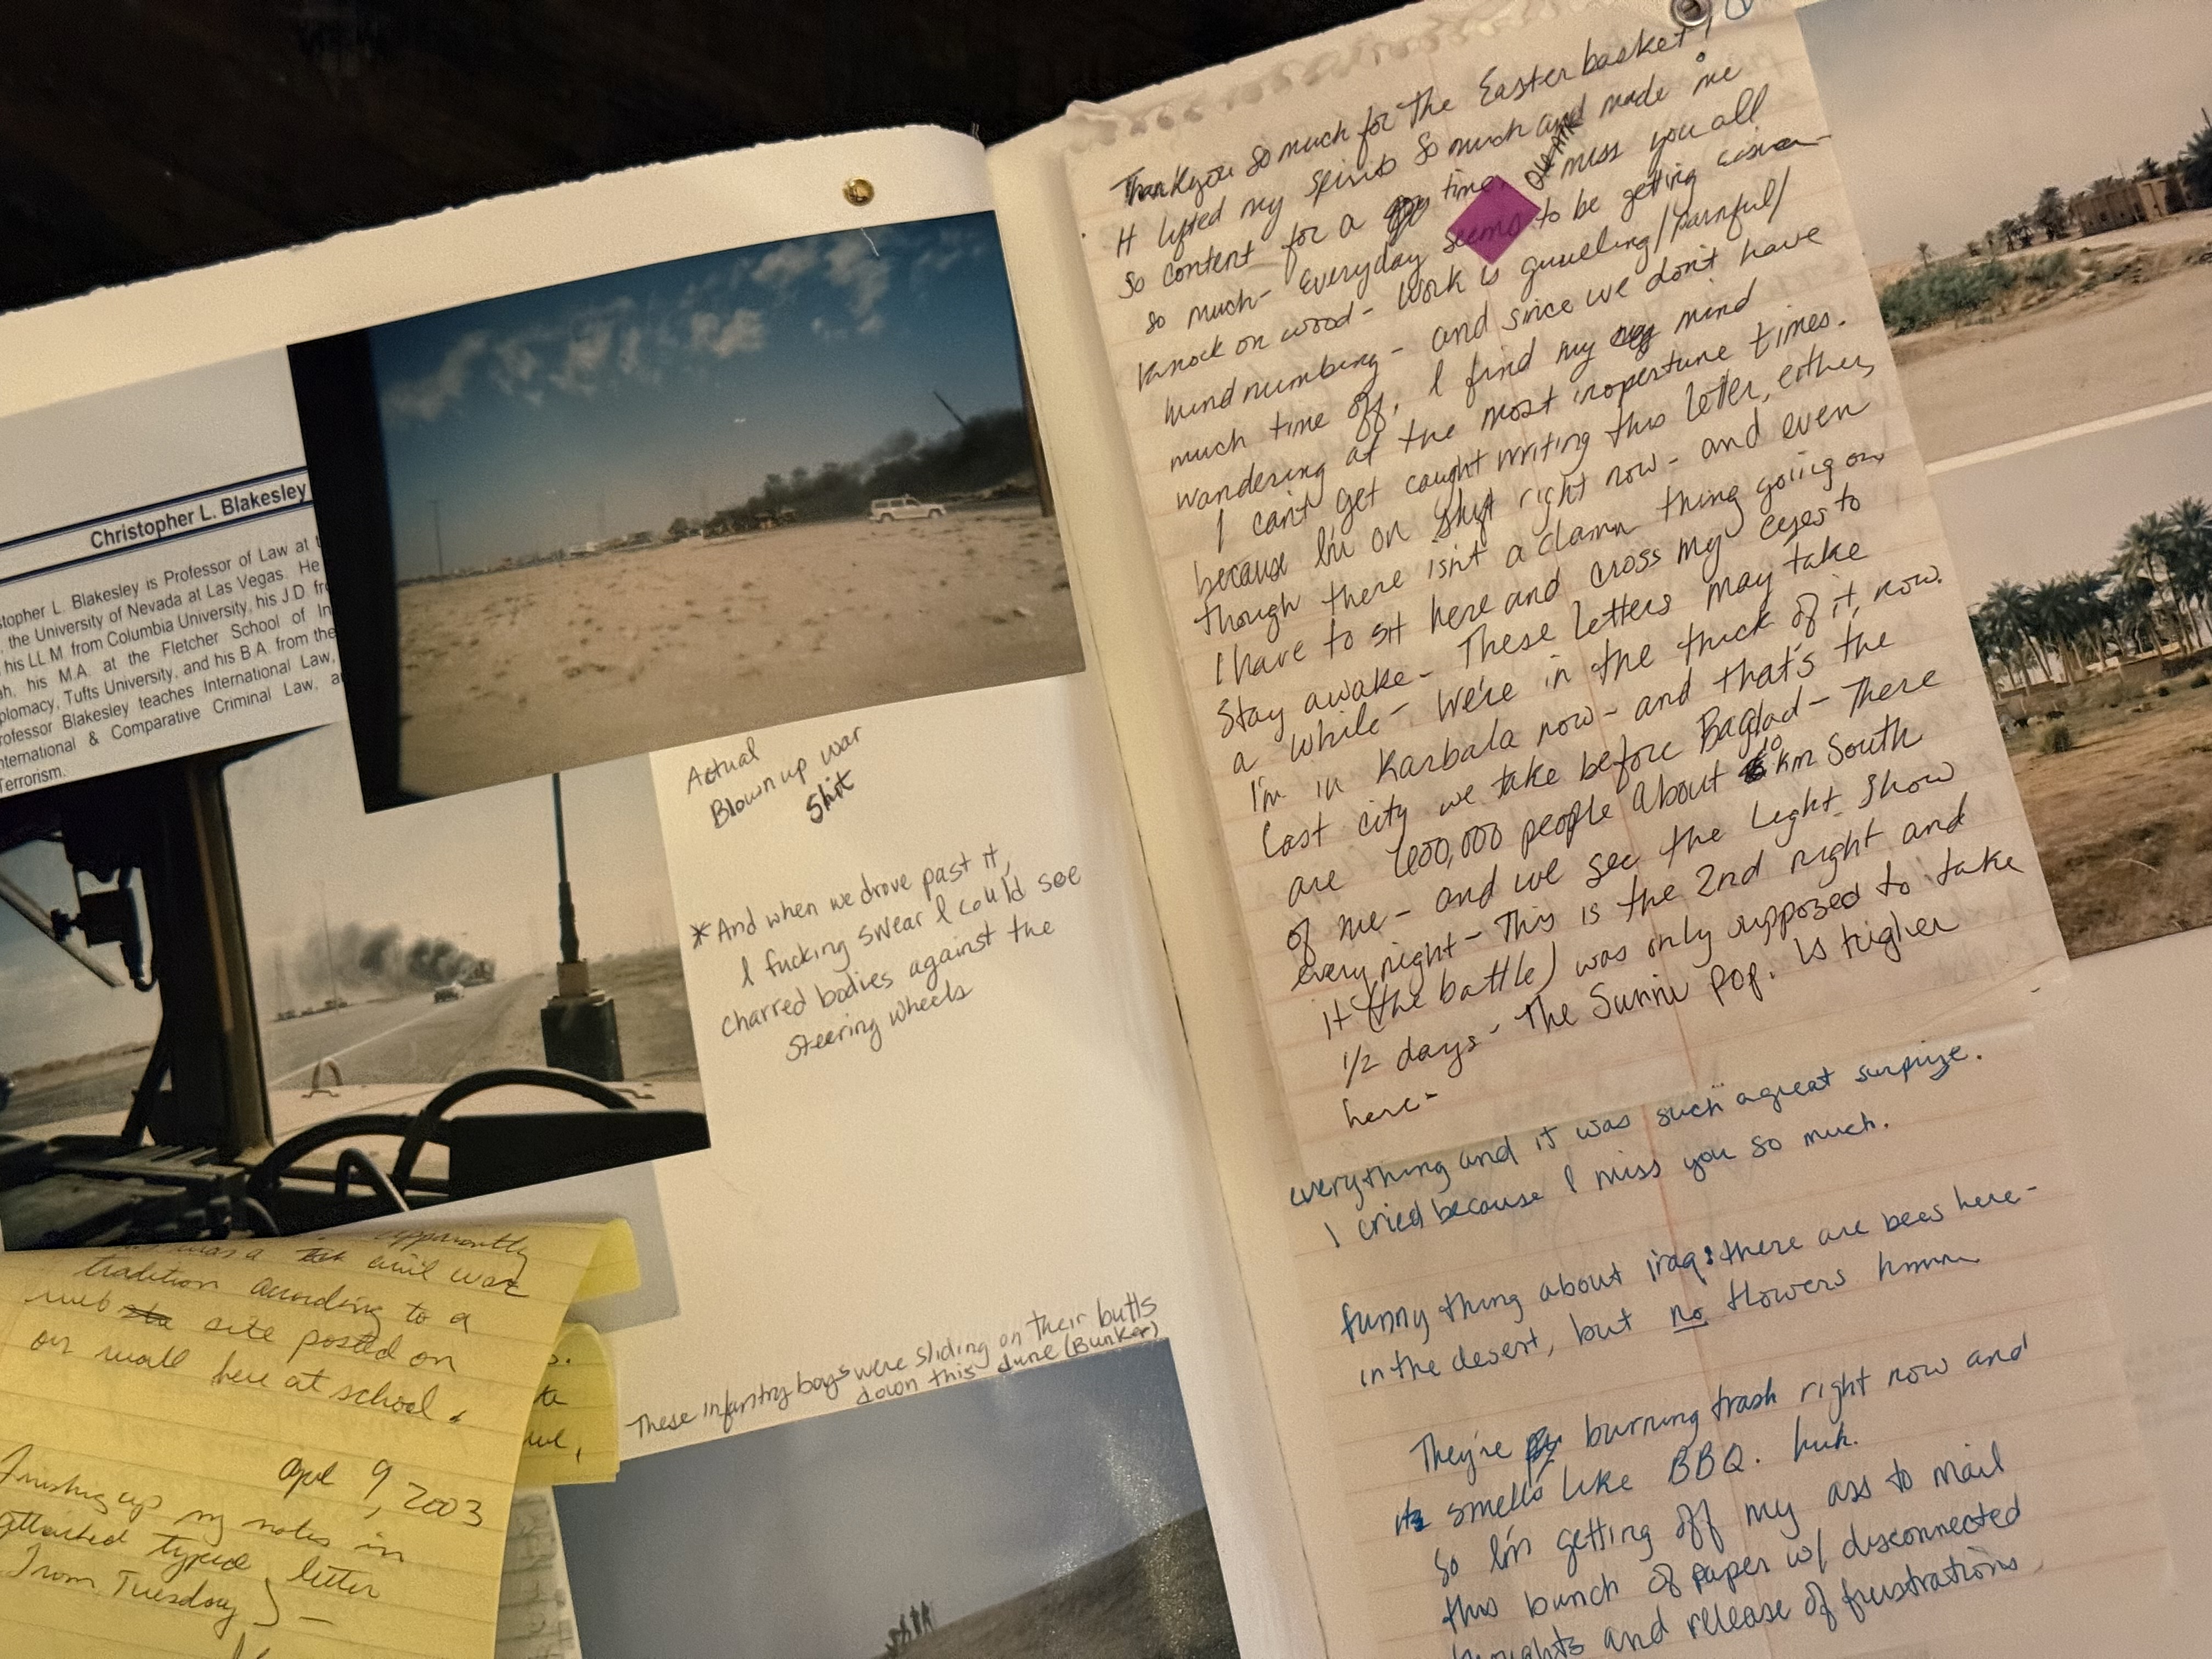 Christopher L. Blakesley
stopher L. Blakesley is Professor of Law at
the University of Nevada at Las Vegas. He
his LL.M. from Columbia University, his J.D. fr
ah, his M.A. at the Fletcher School of In
plomacy, Tufts University, and his B.A. from the
rofessor Blakesley teaches International Law,
nternational & Comparative Criminal Law, a
Terrorism.
Actual
Blown up war
Shit
*And when we drove past it,
I fucking swear I could see
charred bodies against the
steering wheels
apparently
was a civil war
tradition according to a
web site posted on
our wall here at school.
April 9, 2003
Finishing up my notes in
attached typed letter
from Tuesday
These infantry boys were sliding on their butts
down this dune (Bunker)
Thank you so much for the Easter basket!
It lifted my spirits so much and made me
so content for a time. I miss you all
so much - Everyday seems to be getting easier -
knock on wood - work is grueling/painful/
mind numbing - and since we don't have
much time off, I find my mind
wandering at the most inopertune times.
I can't get caught writing this letter, either,
because I'm on shift right now - and even
though there isn't a damn thing going on,
I have to sit here and cross my eyes to
stay awake - These letters may take
a while - We're in the thick of it, now.
I'm in Karbala now - and that's the
last city we take before Bagdad - There
are 600,000 people about 10 km South
of me - and we see the Light Show
every night - This is the 2nd night and
it (the battle) was only supposed to take
1/2 days - The Sunni Pop. is higher
here -
everything and it was such a great surprize.
I cried because I miss you so much.
funny thing about iraq: there are bees here -
in the desert, but no flowers hmmm
They're burning trash right now and
it smells like BBQ. huh.
So I'm getting off my ass to mail
this bunch of paper w/ disconnected
thoughts and release of frustrations